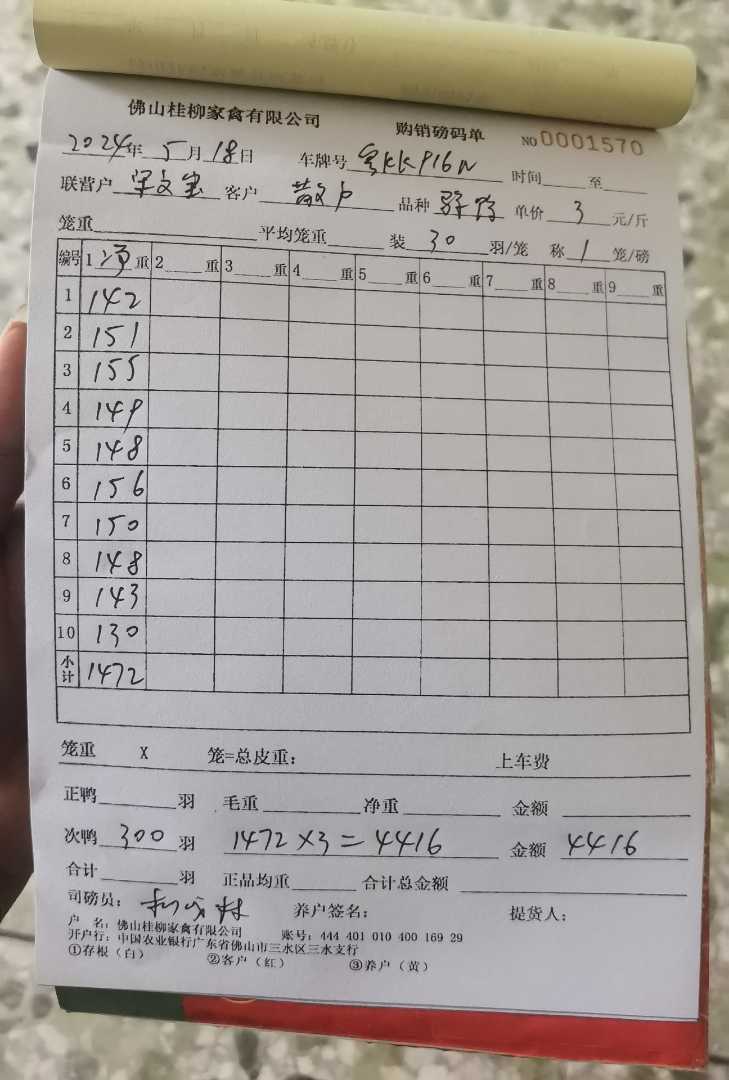 佛山桂柳家禽有限公司 购销磅码单 NO 0001570
2024年 5月18日 车牌号 粤KKP16N 时间 至
联营户 客户 散户 品种 单价 3 元/斤
笼重 平均笼重 装 30 羽/笼 称 1 笼/磅
编号 1 净 重 2 重 3 重 4 重 5 重 6 重 7 重 8 重 9 重
1 142
2 151
3 155
4 149
5 148
6 156
7 150
8 148
9 143
10 130
小计 1472
笼重 X 笼=总皮重: 上车费
正鸭 羽 毛重 净重 金额
次鸭 300 羽 1472×3=4416 金额 4416
合计 羽 正品均重 合计总金额
司磅员: 养户签名: 提货人:
户 名: 佛山桂柳家禽有限公司 账号: 444 401 010 400 169 29
开户行: 中国农业银行广东省佛山市三水区三水支行
①存根(白) ②客户(红) ③养户(黄)